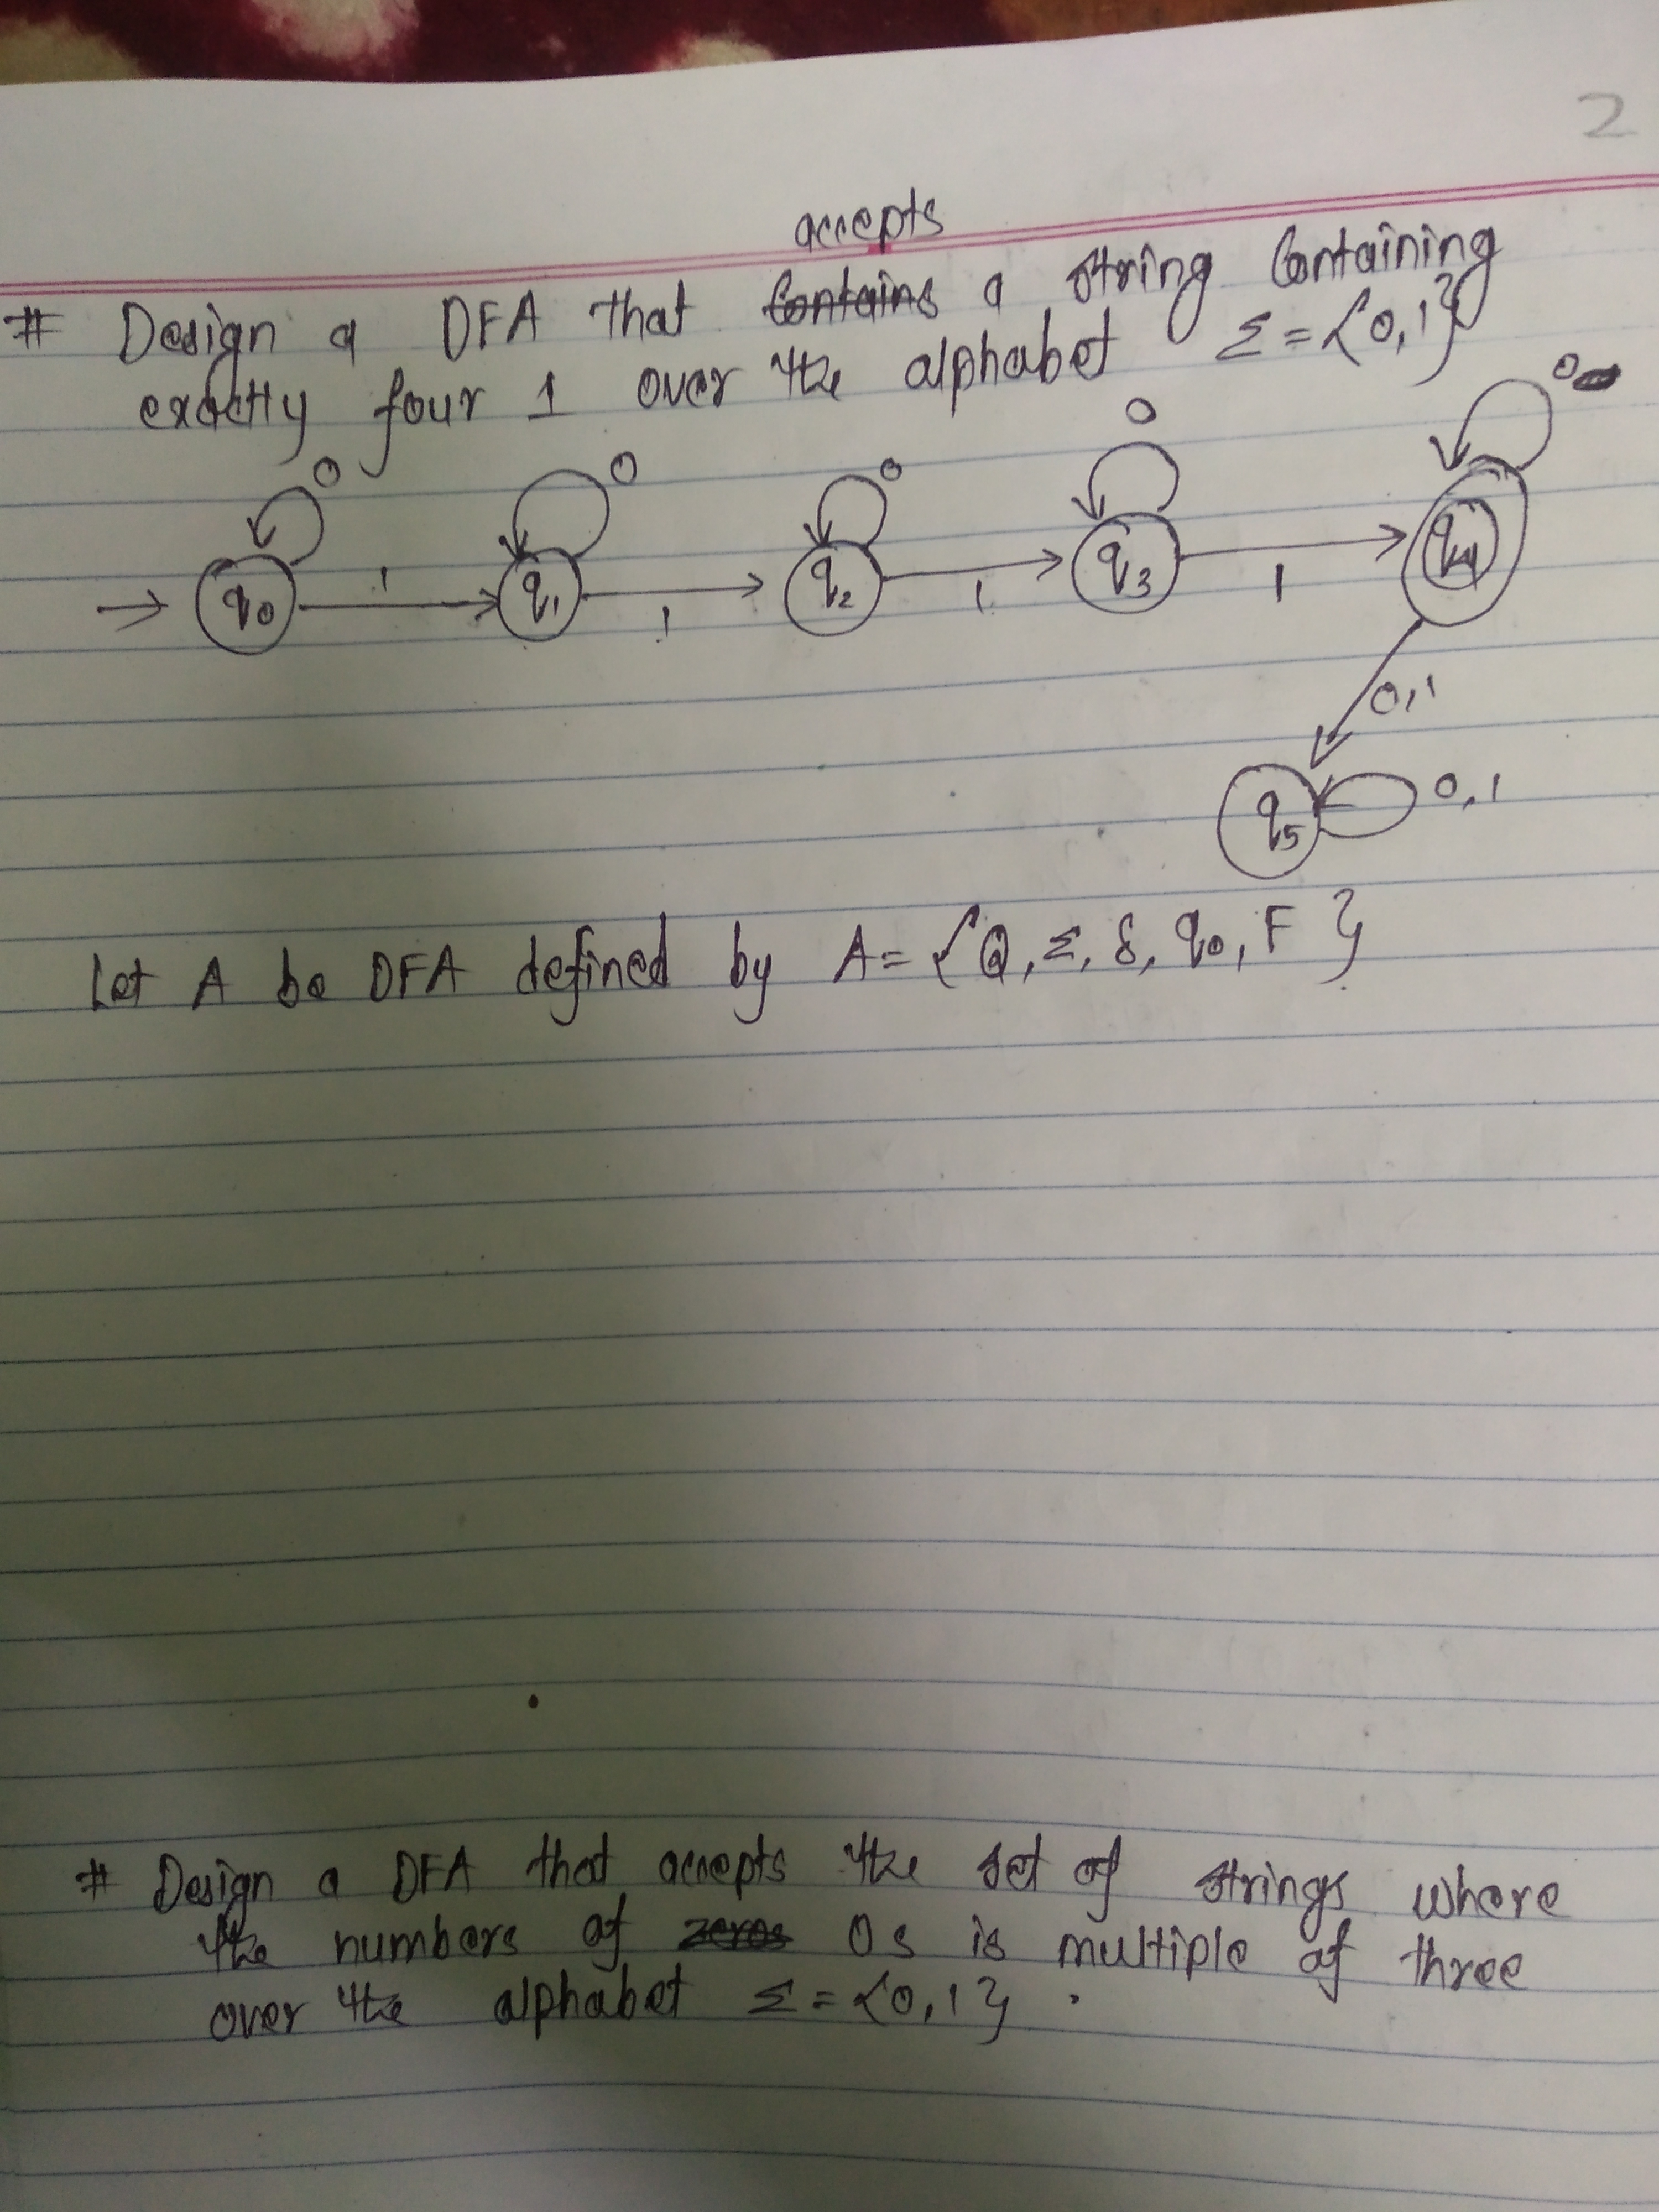 2
accepts
# Design a DFA that contains a string containing
exactly four 1 over the alphabet Σ = {0,1}
0 0 0 0 0
→ q0 1 q1 1 q2 1 q3 1 q4
0,1
q5 0,1
Let A be DFA defined by A = {Q, Σ, δ, q0, F}
# Design a DFA that accepts the set of strings where
the numbers of zeros 0s is multiple of three
over the alphabet Σ = {0,1}.